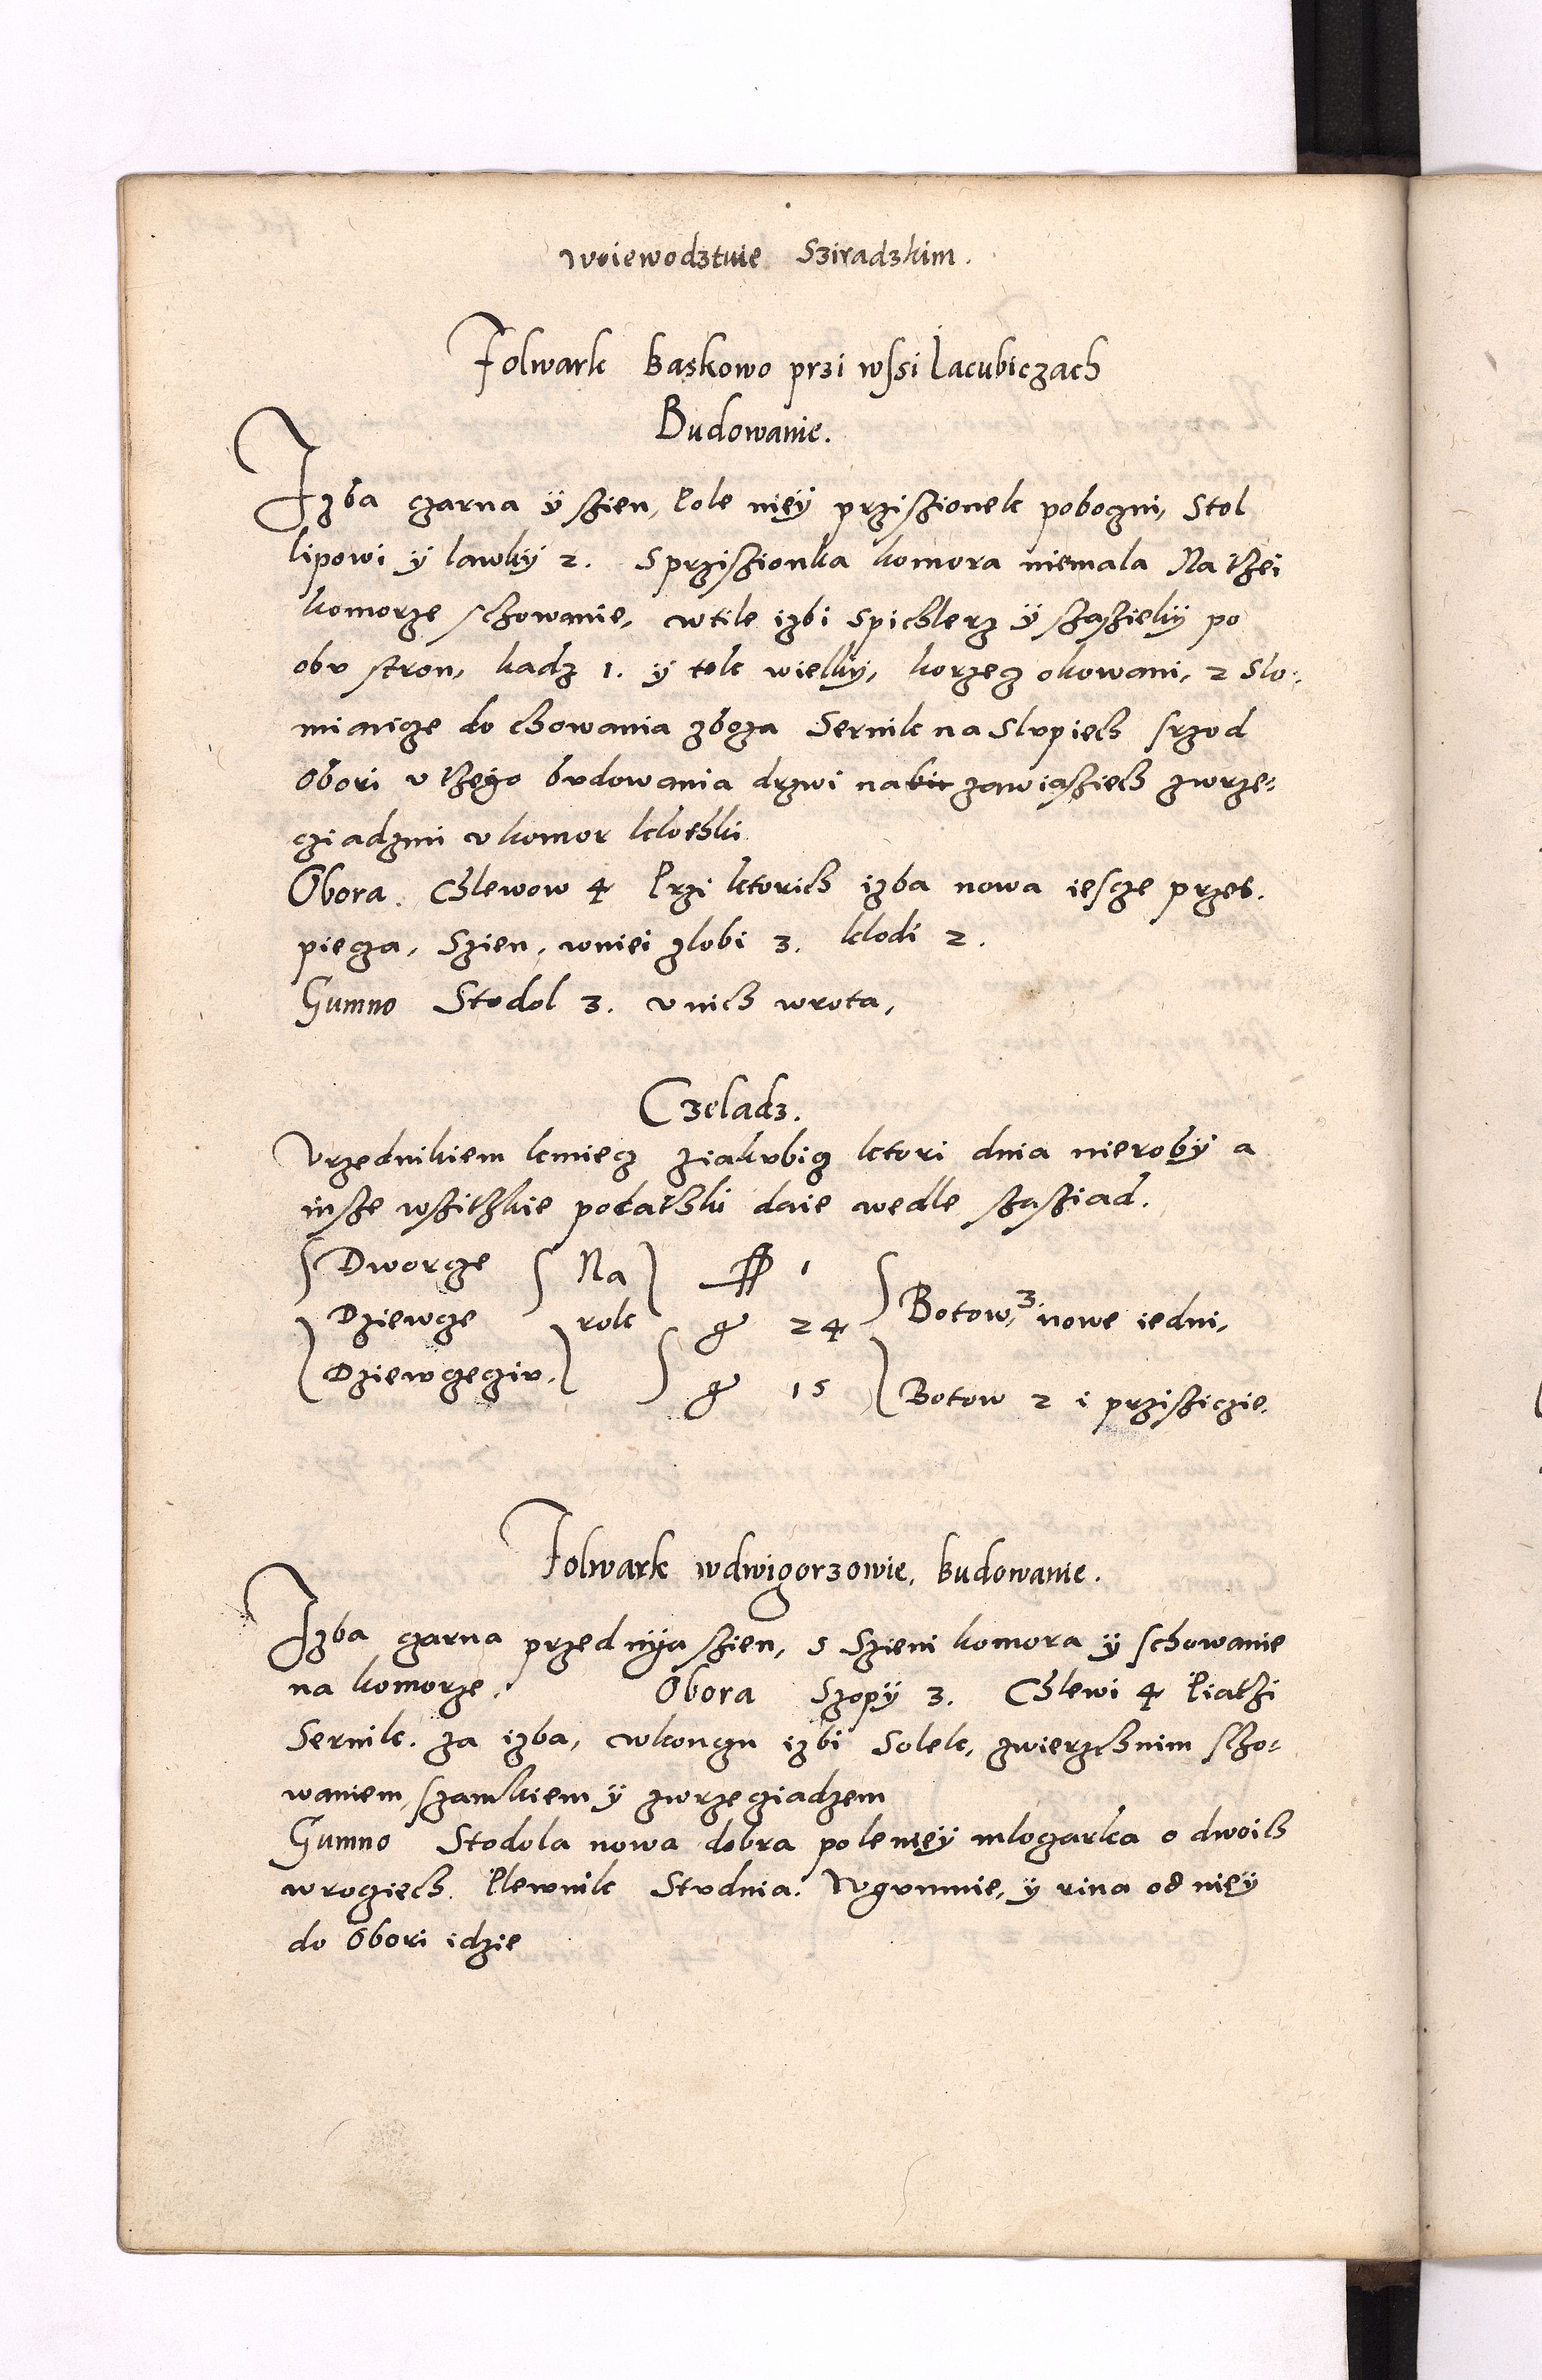 woiewodztwie Sziradzkim.
Folwark Baskowo przi wssi Iacubiczach
Budowanie.
Izba czarna ÿ szien, Pole nieÿ prziszionek poboczni, Stol
lipowi ÿ lawkÿ 2. Sprziszionka komora niemala Na thei
komorze schowanie, wtile izbi Spichlerz ÿ szasziekÿ po
obv stron, kadz 1. ÿ tok wielkÿ, korzecz okowani, 2 Slo:
mianicze do chowania zboza Sernik na Slvpiech srzod
Obori v thego bvdowania drzwi na zawiasziech zwrze:
cziadzmi v komor klothki
Obora. Chlewow 4 Przi ktorich izba nowa iescze przes.
piecza, Szien, wniei zlobi 3. klodi 2.
Gumno Stodol 3. v nich wrota,
Czeladz.
Vrzednikiem kmiecz ziakvbicz ktori dnia nierobÿ a
insze wszithkie podathki daie wedle szasziad.
Dworcze Na 1
Dziewcze rok g 24 Botow, 3 nowe iedni,
Dziewczecziv. g 15 Botow 2 i przisziczie.
Folwark wdwigorzowie, budowanie.
Izba czarna przed nÿa szien, s Szieni komora ÿ schowanie
na komorze. Obora Szopÿ 3. Chlewi 4 Piathi
Sernik. za izba, wkonczu izbi Solek, zwierzchnim scho:
waniem, szamkiem ÿ zwrzecziadzem
Gumno Stodola nowa dobra poleniey mloczarka o dwoich
wrociech. Plewnik Stvdnia. Wgvmnie, ÿ rina od nieÿ
do Obori idzie